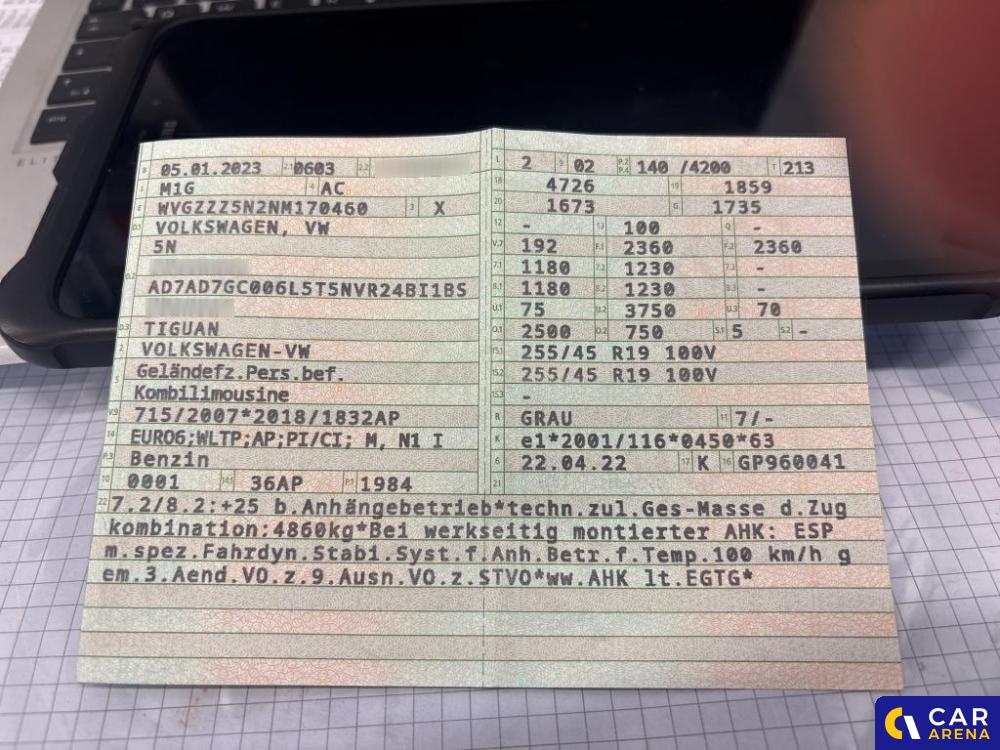 B 05.01.2023 2.1 0603 2.2
J M1G 4 AC
E WVGZZZ5N2NM170460 3 X
D.1 VOLKSWAGEN, VW
5N
D.2
AD7AD7GC006L5T5NVR24BI1BS
D.3 TIGUAN
2 VOLKSWAGEN-VW
5 Geländefz.Pers.bef.
Kombilimousine
V.9 715/2007*2018/1832AP
14 EURO6;WLTP;AP;PI/CI; M, N1 I
P.3 Benzin
10 0001 14.1 36AP P.1 1984
L 2 9 02 P.2 P.4 140 /4200 T 213
18 4726 19 1859
20 1673 G 1735
12 - 13 100 Q -
V.7 192 F.1 2360 F.2 2360
7.1 1180 7.2 1230 7.3 -
8.1 1180 8.2 1230 8.3 -
U.1 75 U.2 3750 U.3 70
O.1 2500 O.2 750 S.1 5 S.2 -
15.1 255/45 R19 100V
15.2 255/45 R19 100V
15.3 -
R GRAU 11 7/-
K e1*2001/116*0450*63
6 22.04.22 17 K 16 GP960041
21
22 7.2/8.2:+25 b.Anhängebetrieb*techn.zul.Ges-Masse d.Zug
kombination:4860kg*Bei werkseitig montierter AHK: ESP
m.spez.Fahrdyn.Stabi.Syst.f.Anh.Betr.f.Temp.100 km/h g
em.3.Aend.VO.z.9.Ausn.VO.z.STVO*ww.AHK lt.EGTG*
CAR
ARENA